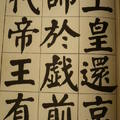 上皇還京
師於戲前
代帝王有